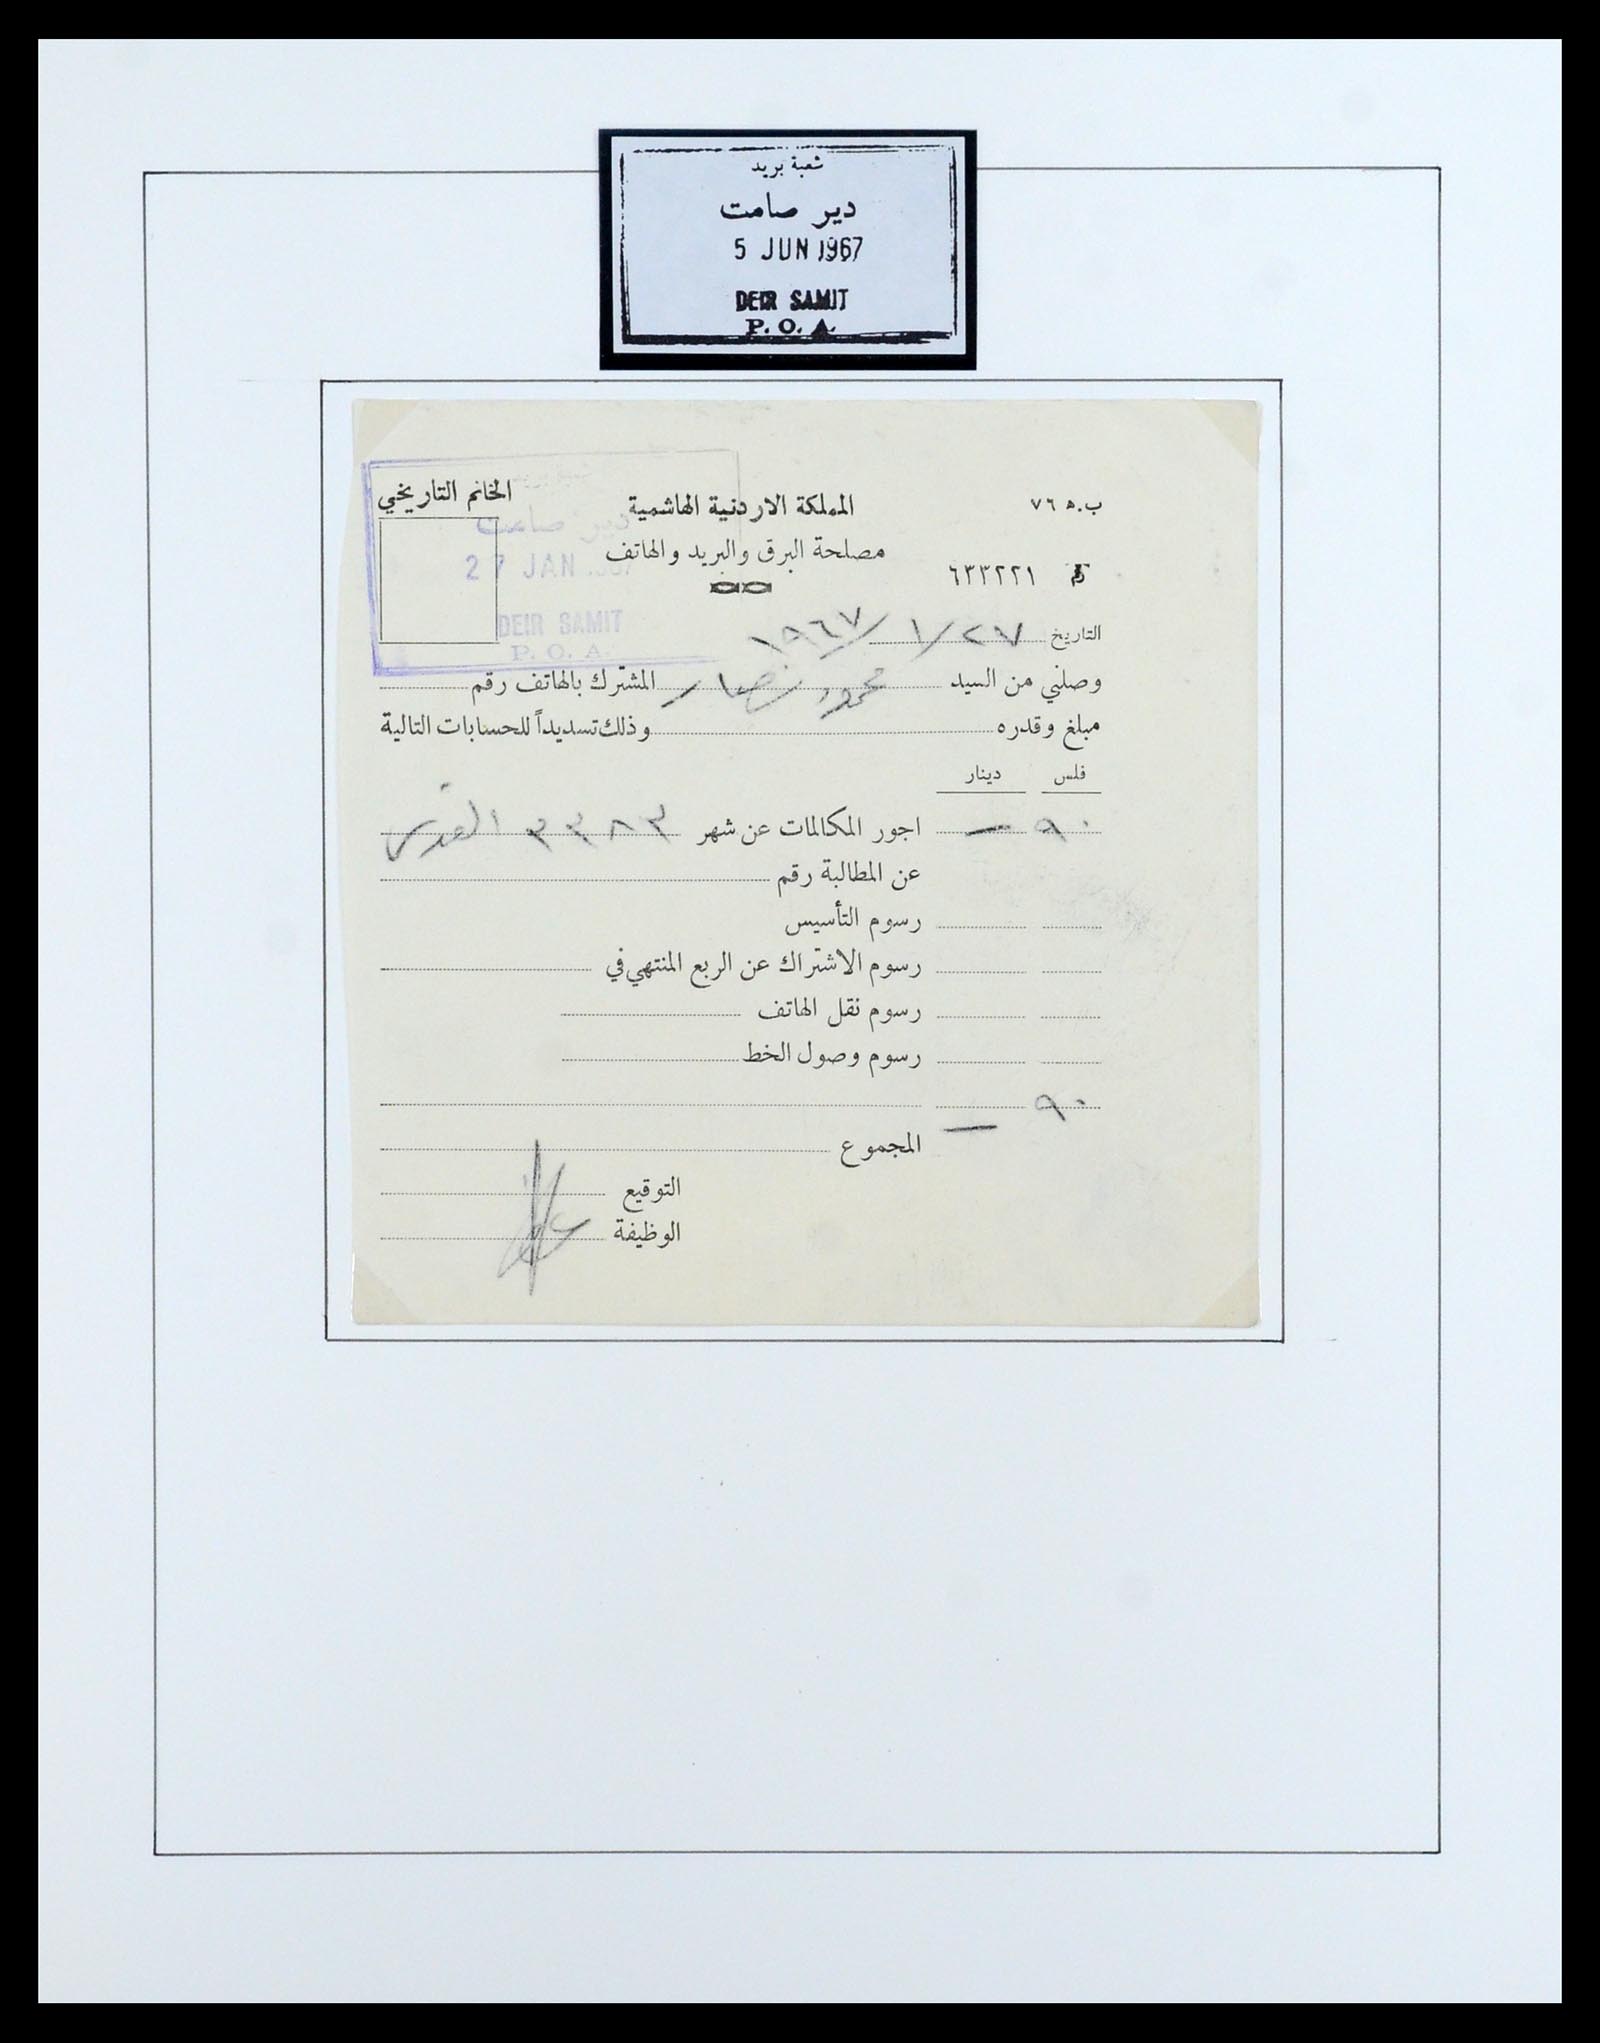 شعبة بريد
دير صامت
5 JUN 1967
DEIR SAMIT
P. O. A.
الخاتم التاريخي
دير صامت
27 JAN 1967
DEIR SAMIT
P. O. A.
ب.ه ٧٦
المملكة الاردنية الهاشمية
مصلحة البرق والبريد والهاتف
٦٣٣٢٢١
التاريخ ٢٧/ ١/ ١٩٦٧
وصلني من السيد محمود نصار المشترك بالهاتف رقم
مبلغ وقدره وذلك تسديداً للحسابات التالية
فلس دينار
٩٠ — اجور المكالمات عن شهر ٣٣٨٣ القدس
عن المطالبة رقم
رسوم التأسيس
رسوم الاشتراك عن الربع المنتهي في
رسوم نقل الهاتف
رسوم وصول الخط
٩٠ —
المجموع
التوقيع
الوظيفة